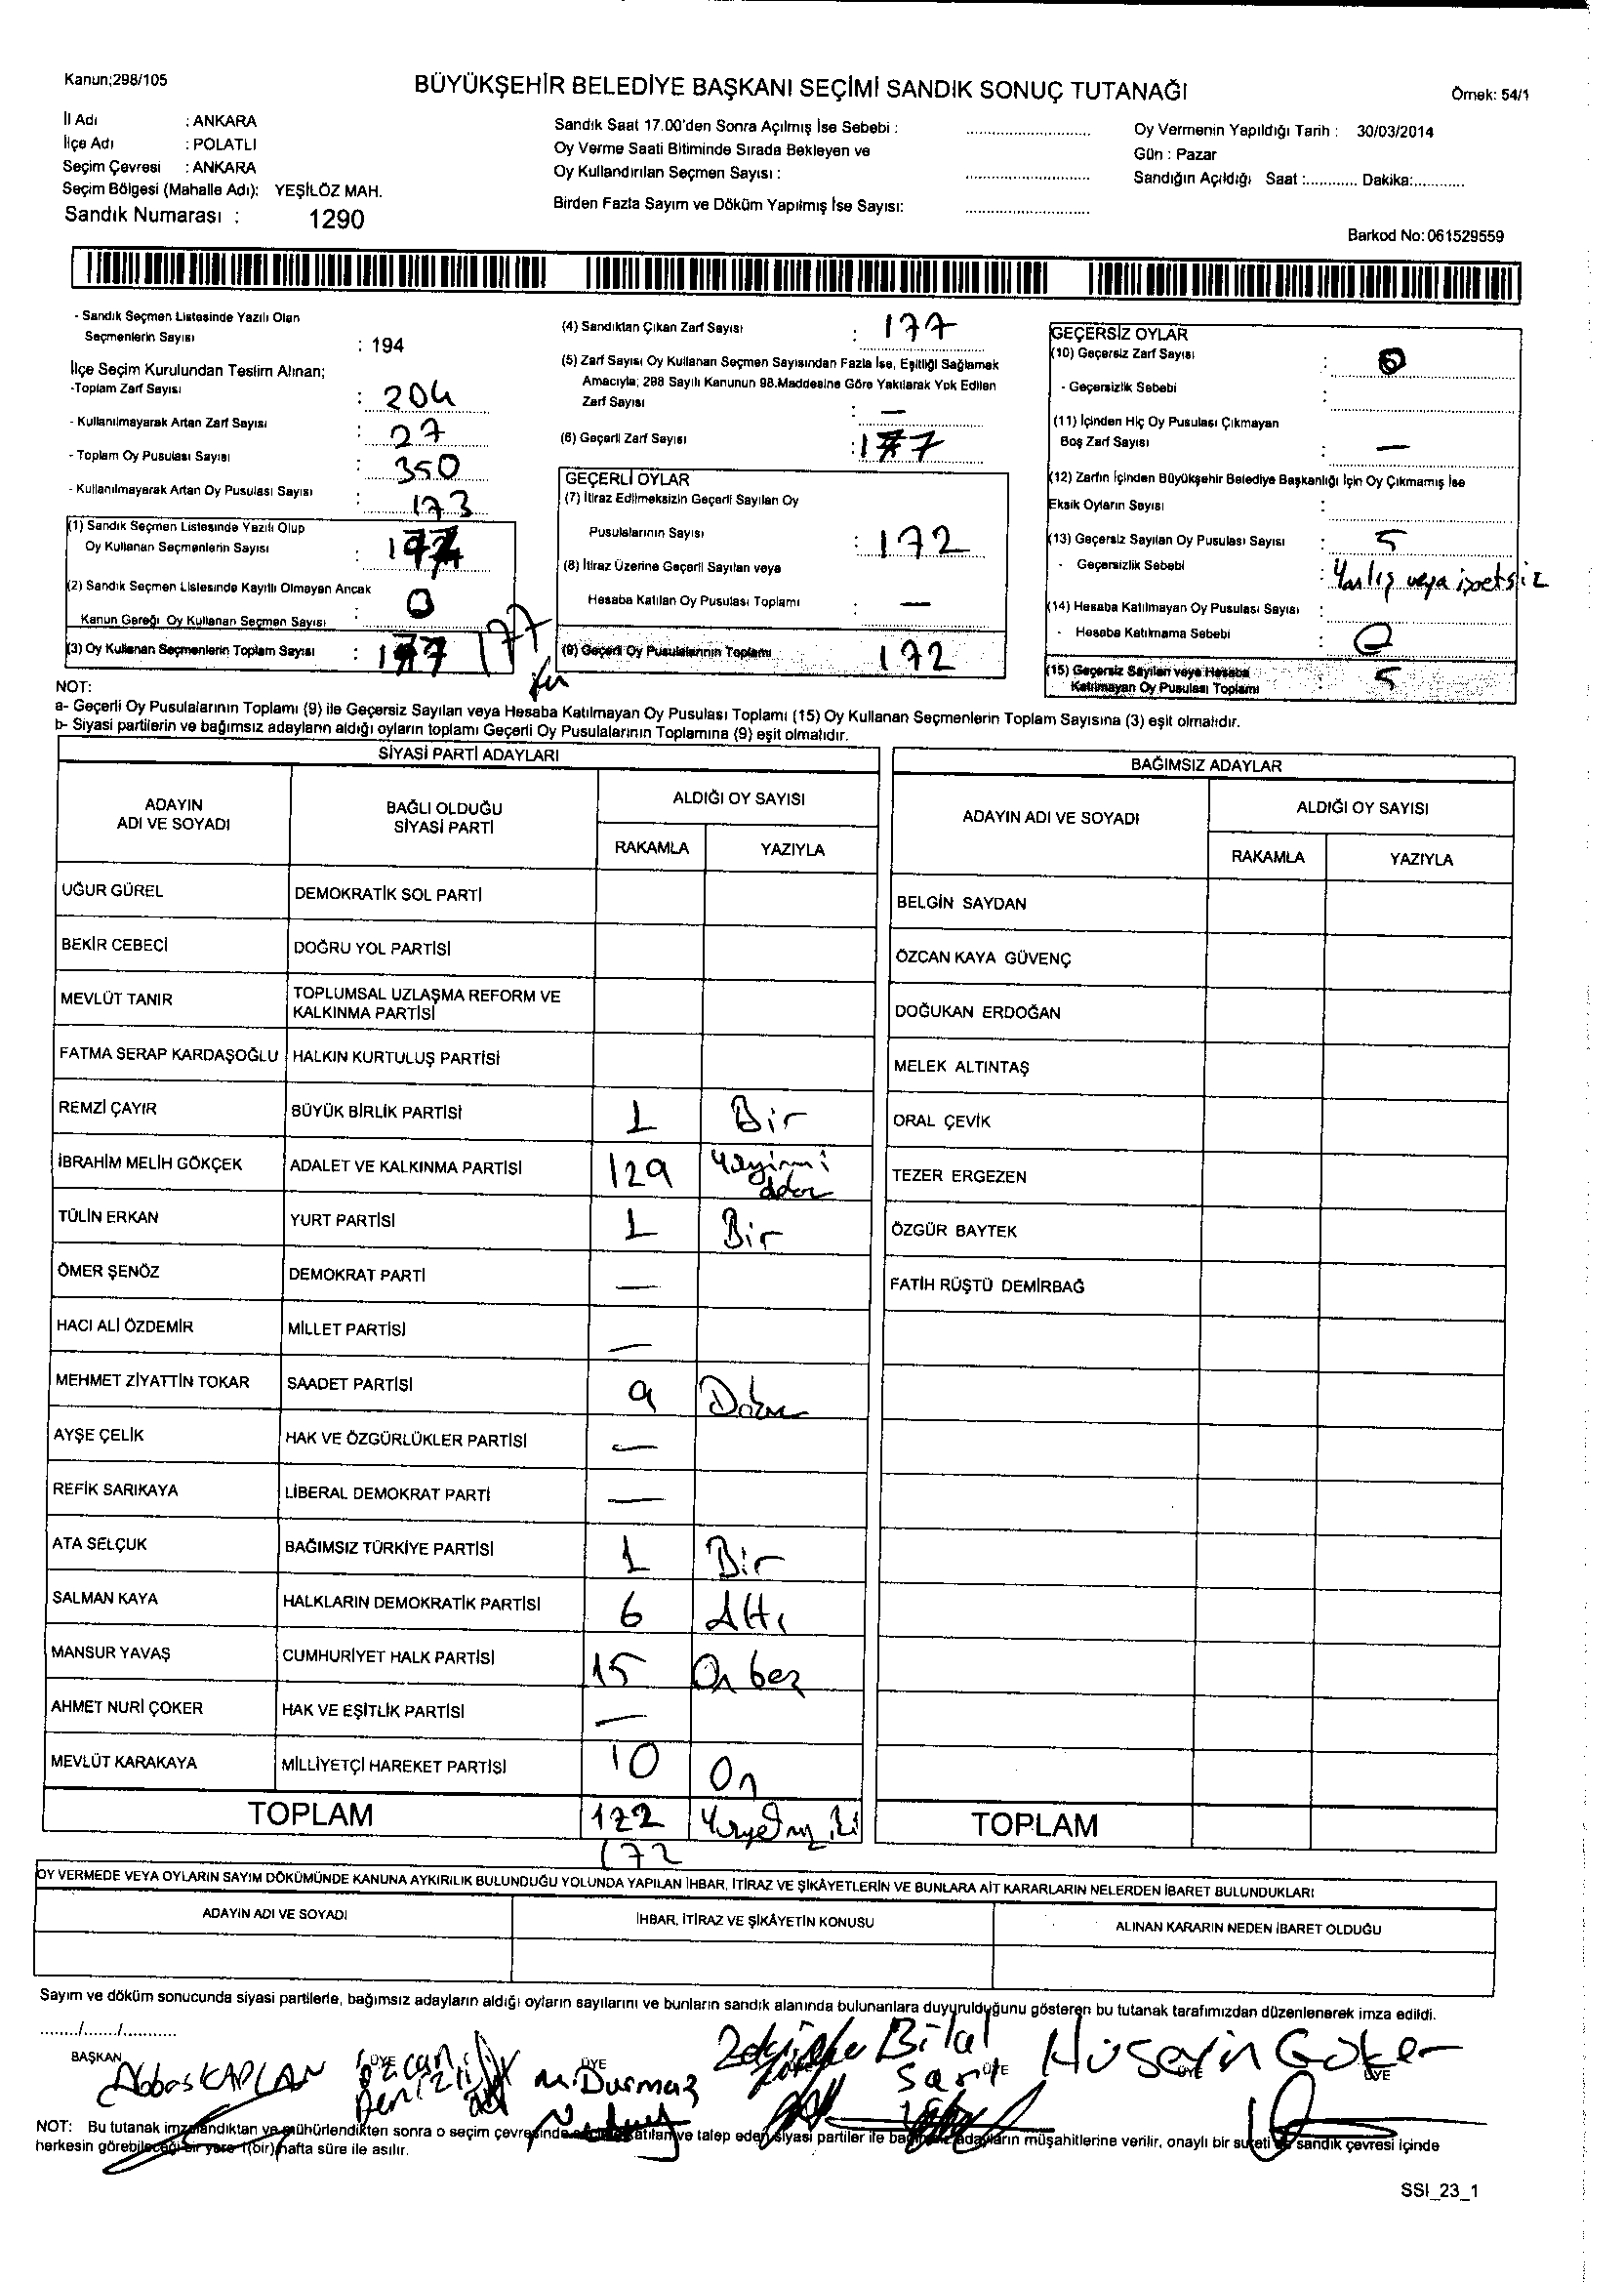 Kanun;298/105
BÜYÜKŞEHİR BELEDİYE BAŞKANI SEÇİMİ SANDIK SONUÇ TUTANAĞI
Örnek: 54/1
İl Adı : ANKARA
İlçe Adı : POLATLI
Seçim Çevresi : ANKARA
Seçim Bölgesi (Mahalle Adı): YEŞİLÖZ MAH.
Sandık Numarası : 1290
Sandık Saat 17.00'den Sonra Açılmış İse Sebebi :
Oy Verme Saati Bitiminde Sırada Bekleyen ve
Oy Kullandırılan Seçmen Sayısı :
Birden Fazla Sayım ve Döküm Yapılmış İse Sayısı:
Oy Vermenin Yapıldığı Tarih : 30/03/2014
Gün : Pazar
Sandığın Açıldığı Saat :............ Dakika:...........
Barkod No: 061529559
- Sandık Seçmen Listesinde Yazılı Olan
Seçmenlerin Sayısı : 194
İlçe Seçim Kurulundan Teslim Alınan;
-Toplam Zarf Sayısı : 204
- Kullanılmayarak Artan Zarf Sayısı : 27
- Toplam Oy Pusulası Sayısı : 350
- Kullanılmayarak Artan Oy Pusulası Sayısı : 173
(1) Sandık Seçmen Listesinde Yazılı Olup
Oy Kullanan Seçmenlerin Sayısı : 177
(2) Sandık Seçmen Listesinde Kayıtlı Olmayan Ancak
Kanun Gereği Oy Kullanan Seçmen Sayısı : 0
(3) Oy Kullanan Seçmenlerin Toplam Sayısı : 177 177
(4) Sandıktan Çıkan Zarf Sayısı : 177
(5) Zarf Sayısı Oy Kullanan Seçmen Sayısından Fazla İse, Eşitliği Sağlamak
Amacıyla; 298 Sayılı Kanunun 98.Maddesine Göre Yakılarak Yok Edilen
Zarf Sayısı : —
(6) Geçerli Zarf Sayısı : 177
GEÇERLİ OYLAR
(7) İtiraz Edilmeksizin Geçerli Sayılan Oy
Pusulalarının Sayısı : 172
(8) İtiraz Üzerine Geçerli Sayılan veya
Hesaba Katılan Oy Pusulası Toplamı : —
(9) Geçerli Oy Pusulalarının Toplamı 172
GEÇERSİZ OYLAR
(10) Geçersiz Zarf Sayısı : 0
- Geçersizlik Sebebi :
(11) İçinden Hiç Oy Pusulası Çıkmayan
Boş Zarf Sayısı : —
(12) Zarfın İçinden Büyükşehir Belediye Başkanlığı İçin Oy Çıkmamış İse
Eksik Oyların Sayısı :
(13) Geçersiz Sayılan Oy Pusulası Sayısı : 5
- Geçersizlik Sebebi : Yanlış veya işaetsiz
(14) Hesaba Katılmayan Oy Pusulası Sayısı :
- Hesaba Katılmama Sebebi : 0
(15) Geçersiz Sayılan veya Hesaba
Katılmayan Oy Pusulası Toplamı : 5
NOT:
a- Geçerli Oy Pusulalarının Toplamı (9) ile Geçersiz Sayılan veya Hesaba Katılmayan Oy Pusulası Toplamı (15) Oy Kullanan Seçmenlerin Toplam Sayısına (3) eşit olmalıdır.
b- Siyasi partilerin ve bağımsız adayların aldığı oyların toplamı Geçerli Oy Pusulalarının Toplamına (9) eşit olmalıdır.
SİYASİ PARTİ ADAYLARI
ADAYIN ADI VE SOYADI BAĞLI OLDUĞU SİYASİ PARTİ ALDIĞI OY SAYISI
RAKAMLA YAZIYLA
UĞUR GÜREL DEMOKRATİK SOL PARTİ
BEKİR CEBECİ DOĞRU YOL PARTİSİ
MEVLÜT TANIR TOPLUMSAL UZLAŞMA REFORM VE KALKINMA PARTİSİ
FATMA SERAP KARDAŞOĞLU HALKIN KURTULUŞ PARTİSİ
REMZİ ÇAYIR BÜYÜK BİRLİK PARTİSİ 1 Bir
İBRAHİM MELİH GÖKÇEK ADALET VE KALKINMA PARTİSİ 129
TÜLİN ERKAN YURT PARTİSİ 1 Bir
ÖMER ŞENÖZ DEMOKRAT PARTİ —
HACI ALİ ÖZDEMİR MİLLET PARTİSİ —
MEHMET ZİYATTİN TOKAR SAADET PARTİSİ 9 Dokuz
AYŞE ÇELİK HAK VE ÖZGÜRLÜKLER PARTİSİ —
REFİK SARIKAYA LİBERAL DEMOKRAT PARTİ —
ATA SELÇUK BAĞIMSIZ TÜRKİYE PARTİSİ 1 Bir
SALMAN KAYA HALKLARIN DEMOKRATİK PARTİSİ 6 Altı
MANSUR YAVAŞ CUMHURİYET HALK PARTİSİ 15 On beş
AHMET NURİ ÇOKER HAK VE EŞİTLİK PARTİSİ —
MEVLÜT KARAKAYA MİLLİYETÇİ HAREKET PARTİSİ 10 On
TOPLAM 172
172
BAĞIMSIZ ADAYLAR
ADAYIN ADI VE SOYADI ALDIĞI OY SAYISI
RAKAMLA YAZIYLA
BELGİN SAYDAN
ÖZCAN KAYA GÜVENÇ
DOĞUKAN ERDOĞAN
MELEK ALTINTAŞ
ORAL ÇEVİK
TEZER ERGEZEN
ÖZGÜR BAYTEK
FATİH RÜŞTÜ DEMİRBAĞ
TOPLAM
OY VERMEDE VEYA OYLARIN SAYIM DÖKÜMÜNDE KANUNA AYKIRILIK BULUNDUĞU YOLUNDA YAPILAN İHBAR, İTİRAZ VE ŞİKÂYETLERİN VE BUNLARA AİT KARARLARIN NELERDEN İBARET BULUNDUKLARI
ADAYIN ADI VE SOYADI İHBAR, İTİRAZ VE ŞİKÂYETİN KONUSU ALINAN KARARIN NEDEN İBARET OLDUĞU
Sayım ve döküm sonucunda siyasi partilerle, bağımsız adayların aldığı oyların sayılarını ve bunların sandık alanında bulunanlara duyurulduğunu gösteren bu tutanak tarafımızdan düzenlenerek imza edildi.
......../......./...........
BAŞKAN ÜYE ÜYE ÜYE ÜYE
Abbas KAPLAN M. Durmaz Bilal Sarı Hüseyin Göker
NOT: Bu tutanak imzalandıktan ve mühürlendikten sonra o seçim çevresinde seçime katılan ve talep eden siyasi partiler ile bağımsız adayların müşahitlerine verilir, onaylı bir sureti de sandık çevresi içinde
herkesin görebileceği bir yere 1(bir) hafta süre ile asılır.
SSI_23_1